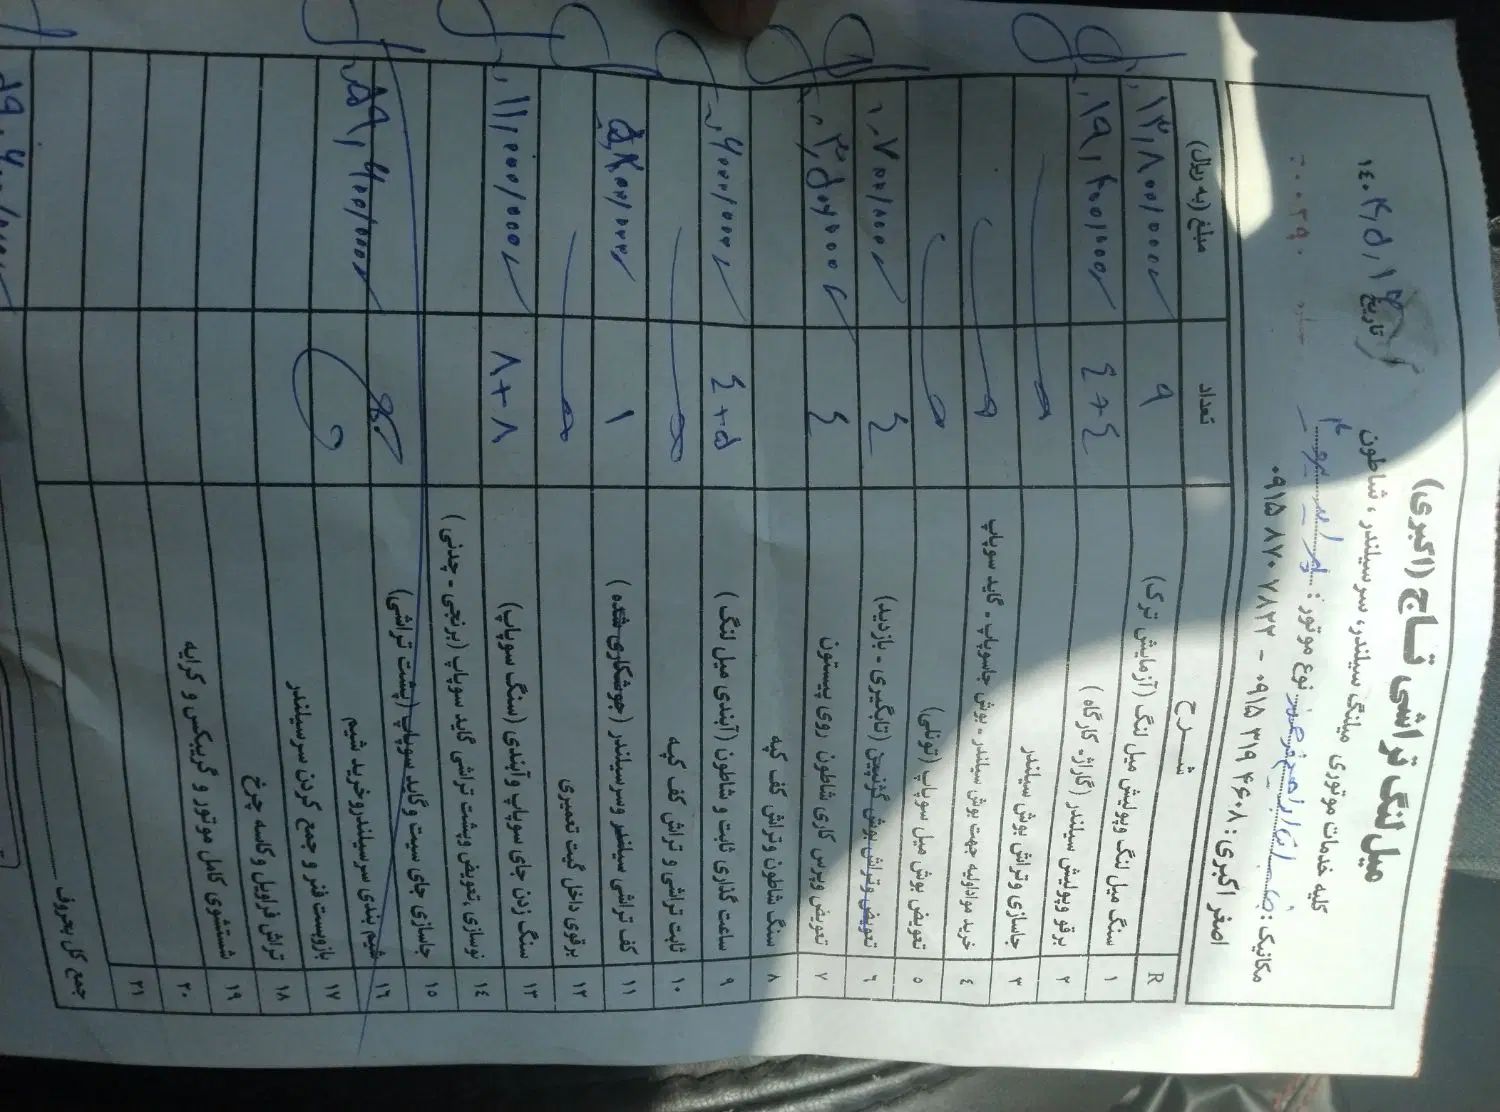 میل لنگ تراشی تاج (اکبری)
کلیه خدمات موتوری میلنگ، سیلندر، سرسیلندر، شاطون
تاریخ ۱۴۰۴,۵,۱۴
مکانیک: نوع موتور:
اصغر اکبری: ۰۹۱۵ ۳۱۹ ۴۶۰۸ - ۰۹۱۵ ۸۷۰ ۷۸۲۲
R شــرح تعداد مبلغ (به ریال)
۱ سنگ میل لنگ وپولیش میل لنگ (آزمایش ترک) ۹ ۱۳,۸۰۰/۰۰۰
۲ برقو وپولیش سیلندر (گاراژ- کارگاه) ٤+٤ ۱۹,۲۰۰/۰۰۰
۳ جاسازی وتراش بوش سیلندر
٤ خرید مواداولیه جهت بوش سیلندر - بوش جاسوپاپ - گاید سوپاپ
٥ تعویض بوش میل سوپاپ (تونلی)
٦ تعویض وتراش بوش گژنپین (تابگیری - بازدید) ٤ ۷۰۰/۰۰۰
۷ تعویض وپرس کاری شاطون روی پیستون ٤ ۳,۵۰۰/۰۰۰
۸ سنگ شاطون وتراش کف کپه
۹ ساعت گذاری ثابت و شاطون (آبندی میل لنگ) ٤+۵ ۶۰۰۰/۰۰۰
۱۰ ثابت تراشی و تراش کف کپه
۱۱ کف تراشی سیلندر وسرسیلندر (جوشکاری شده) ۱ ۵,۲۰۰/۰۰۰
۱۲ برقوی داخل گیت تعمیری
۱۳ سنگ زدن جای سوپاپ وآبندی (سنگ سوپاپ) ۸+۸ ۱۱,۰۰۰/۰۰۰
۱٤ نوسازی ,تعویض وپشت تراشی گاید سوپاپ (برنجی - چدنی)
۱٥ جاسازی جای سیت وگاید سوپاپ (پشت تراشی)
۱٦ شیم بندی سرسیلندروخرید شیم ۵۹,۴۰۰/۰۰۰
۱۷ بازوبست فنر و جمع کردن سرسیلندر
۱۸ تراش فراویل وکاسه چرخ
۱۹ شستشوی کامل موتور و گریبکس و کرایه
۲۰
۲۱
جمع کل بحروف